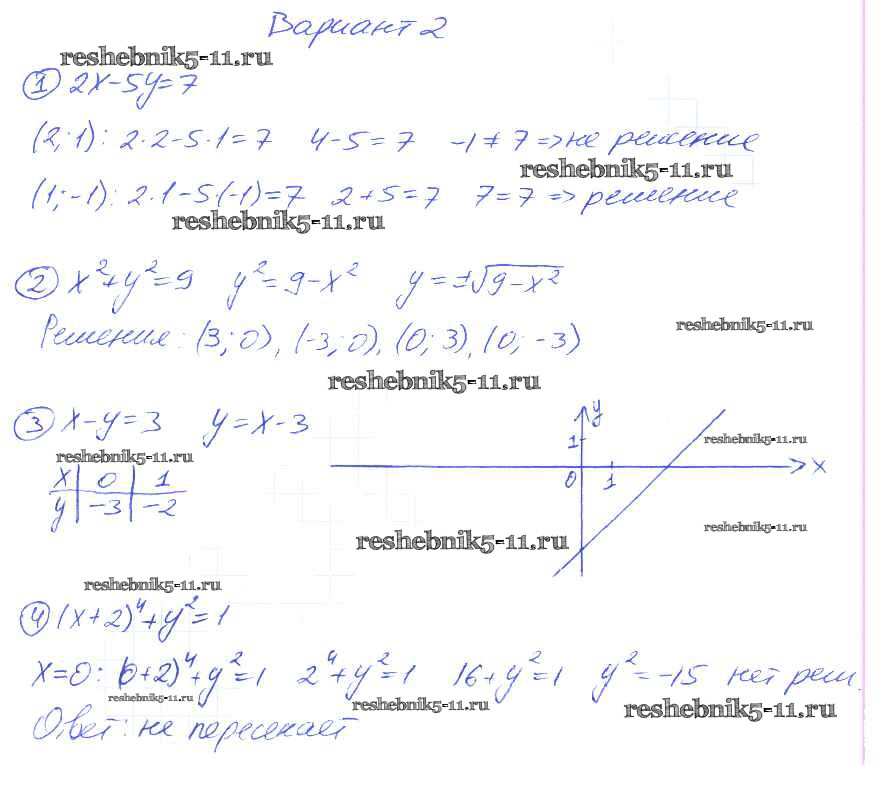 Вариант 2
reshebnik5-11.ru
① 2x-5y=7
(2; 1): 2·2-5·1=7 4-5=7 -1≠7 => не решение
reshebnik5-11.ru
(1; -1): 2·1-5(-1)=7 2+5=7 7=7 => решение
reshebnik5-11.ru
② x²+y²=9 y²=9-x² y=±√9-x²
reshebnik5-11.ru
Решения: (3; 0), (-3; 0), (0; 3), (0; -3)
reshebnik5-11.ru
③ x-y=3 y=x-3
y
1
reshebnik5-11.ru
reshebnik5-11.ru
x
x 0 1
0 1
y -3 -2
reshebnik5-11.ru
reshebnik5-11.ru
reshebnik5-11.ru
④ (x+2)⁴+y²=1
x=0: (0+2)⁴+y²=1 2⁴+y²=1 16+y²=1 y²=-15 нет реш.
reshebnik5-11.ru
reshebnik5-11.ru
reshebnik5-11.ru
Ответ: не пересекает